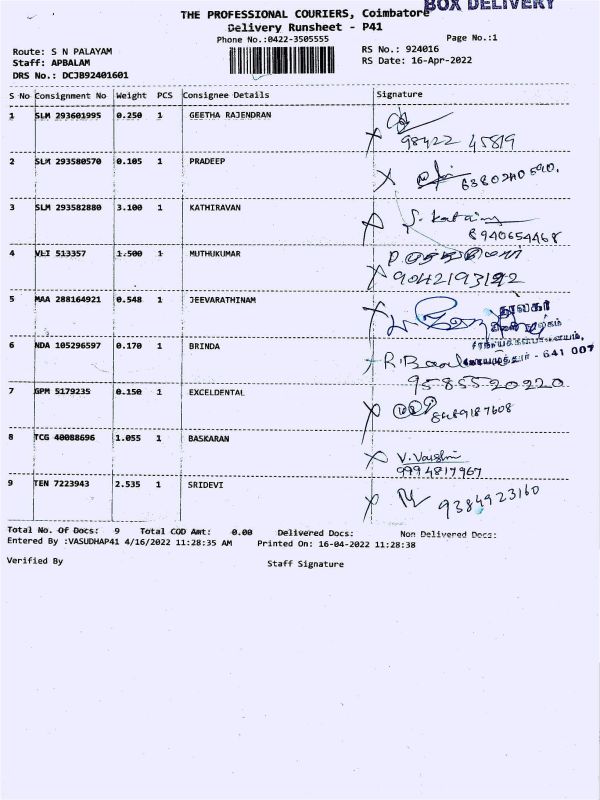 BOX DELIVERY
THE PROFESSIONAL COURIERS, Coimbatore
Delivery Runsheet - P41
Phone No.:0422-3505555
Page No.:1
Route: S N PALAYAM
RS No.: 924016
Staff: APBALAM
RS Date: 16-Apr-2022
DRS No.: DCJB92401601
S No Consignment No Weight PCS Consignee Details Signature
1 SLM 293601995 0.250 1 GEETHA RAJENDRAN
98422 45819
2 SLM 293580570 0.105 1 PRADEEP
6380240590.
3 SLM 293582880 3.100 1 KATHIRAVAN
8940654468
4 VLI 513357 1.500 1 MUTHUKUMAR
9042193122
5 MAA 288164921 0.548 1 JEEVARATHINAM
6 NDA 105296597 0.170 1 BRINDA
- 641 007
9585520220
7 GPM 5179235 0.150 1 EXCELDENTAL
8489187608
8 TCG 40088696 1.055 1 BASKARAN
V. Vaishni
9994817967
9 TEN 7223943 2.535 1 SRIDEVI
9384923160
Total No. Of Docs: 9 Total COD Amt: 0.00 Delivered Docs: Non Delivered Docs:
Entered By :VASUDHAP41 4/16/2022 11:28:35 AM Printed On: 16-04-2022 11:28:38
Verified By
Staff Signature